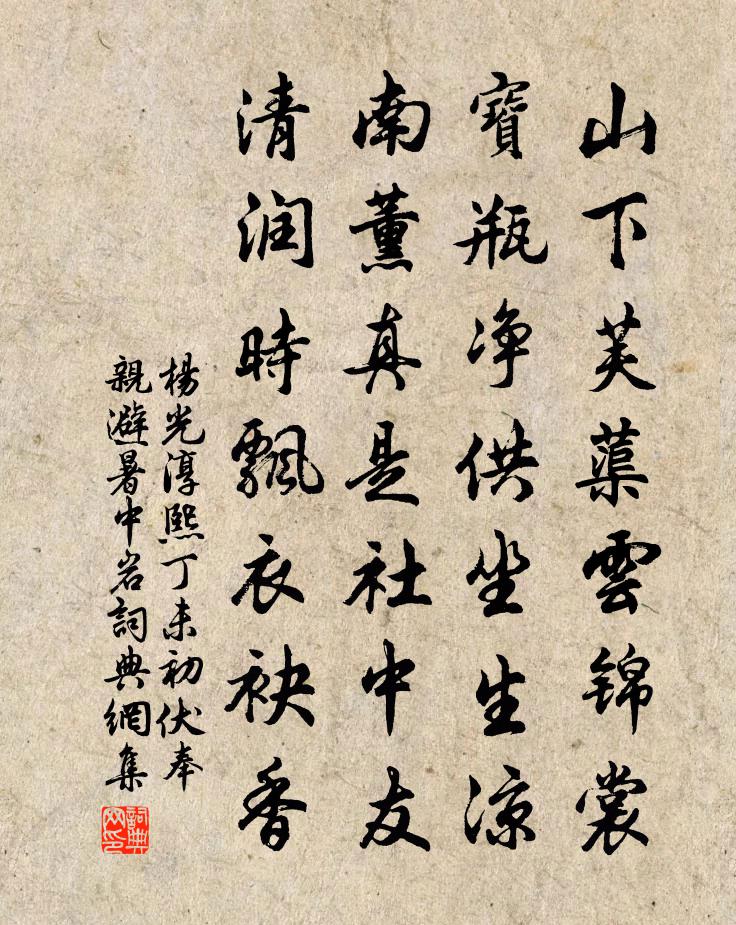 山下芙蕖雲锦裳
寶瓶净供坐生凉
南薰真是社中友
清润時飄衣袂香
楊光淳熙丁未初伏奉
親避暑中岩詞典網集
詞典网印